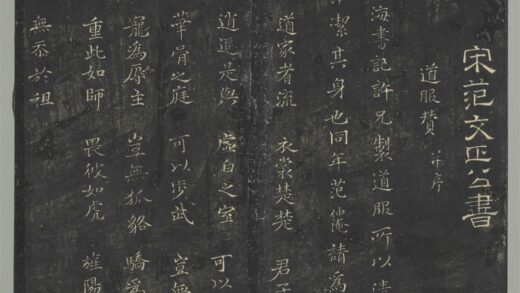 宋范文正公書
道服贊 并序
海書記許兄製道服所以清
潔其身也同年范仲淹請為
道家者流 衣裳楚楚 君子
逍遙是與 虛白之室 可以
華胥之庭 可以步武 豈無
寵為辱主 豈無狐貉 驕為
重此如師 畏彼如虎 旌陽
無忝於祖